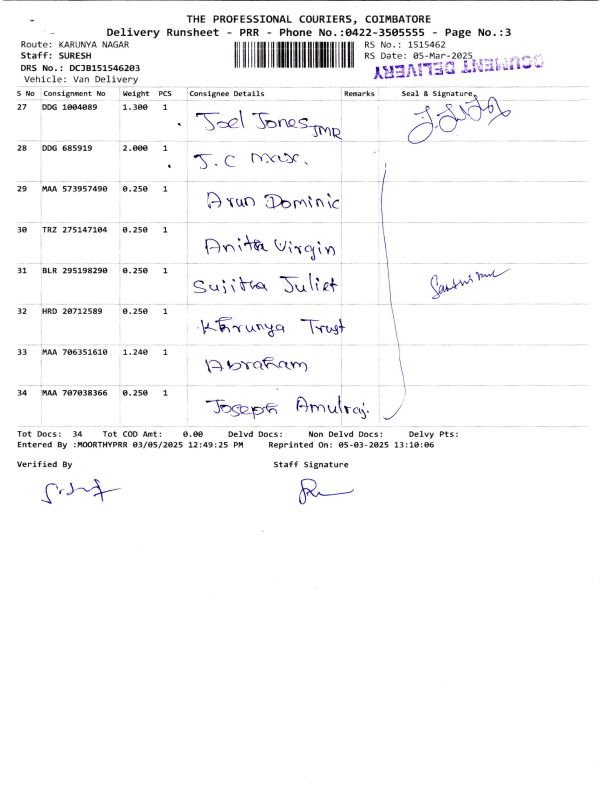 THE PROFESSIONAL COURIERS, COIMBATORE
Delivery Runsheet - PRR - Phone No.:0422-3505555 - Page No.:3
Route: KARUNYA NAGAR RS No.: 1515462
Staff: SURESH RS Date: 05-Mar-2025
DRS No.: DCJB151546203 DOCUMENT DELIVERY
Vehicle: Van Delivery
S No Consignment No Weight PCS Consignee Details Remarks Seal & Signature
27 DDG 1004089 1.300 1 Joel Jones JMR
28 DDG 685919 2.000 1 J.C Max.
29 MAA 573957490 0.250 1 Arun Dominic
30 TRZ 275147104 0.250 1 Anitta Virgin
31 BLR 295198290 0.250 1 Sujitha Juliet
32 HRD 20712589 0.250 1 Kharunya Trust
33 MAA 706351610 1.240 1 Abraham
34 MAA 707038366 0.250 1 Joseph Amulraj.
Tot Docs: 34 Tot COD Amt: 0.00 Delvd Docs: Non Delvd Docs: Delvy Pts:
Entered By :MOORTHYPRR 03/05/2025 12:49:25 PM Reprinted On: 05-03-2025 13:10:06
Verified By Staff Signature